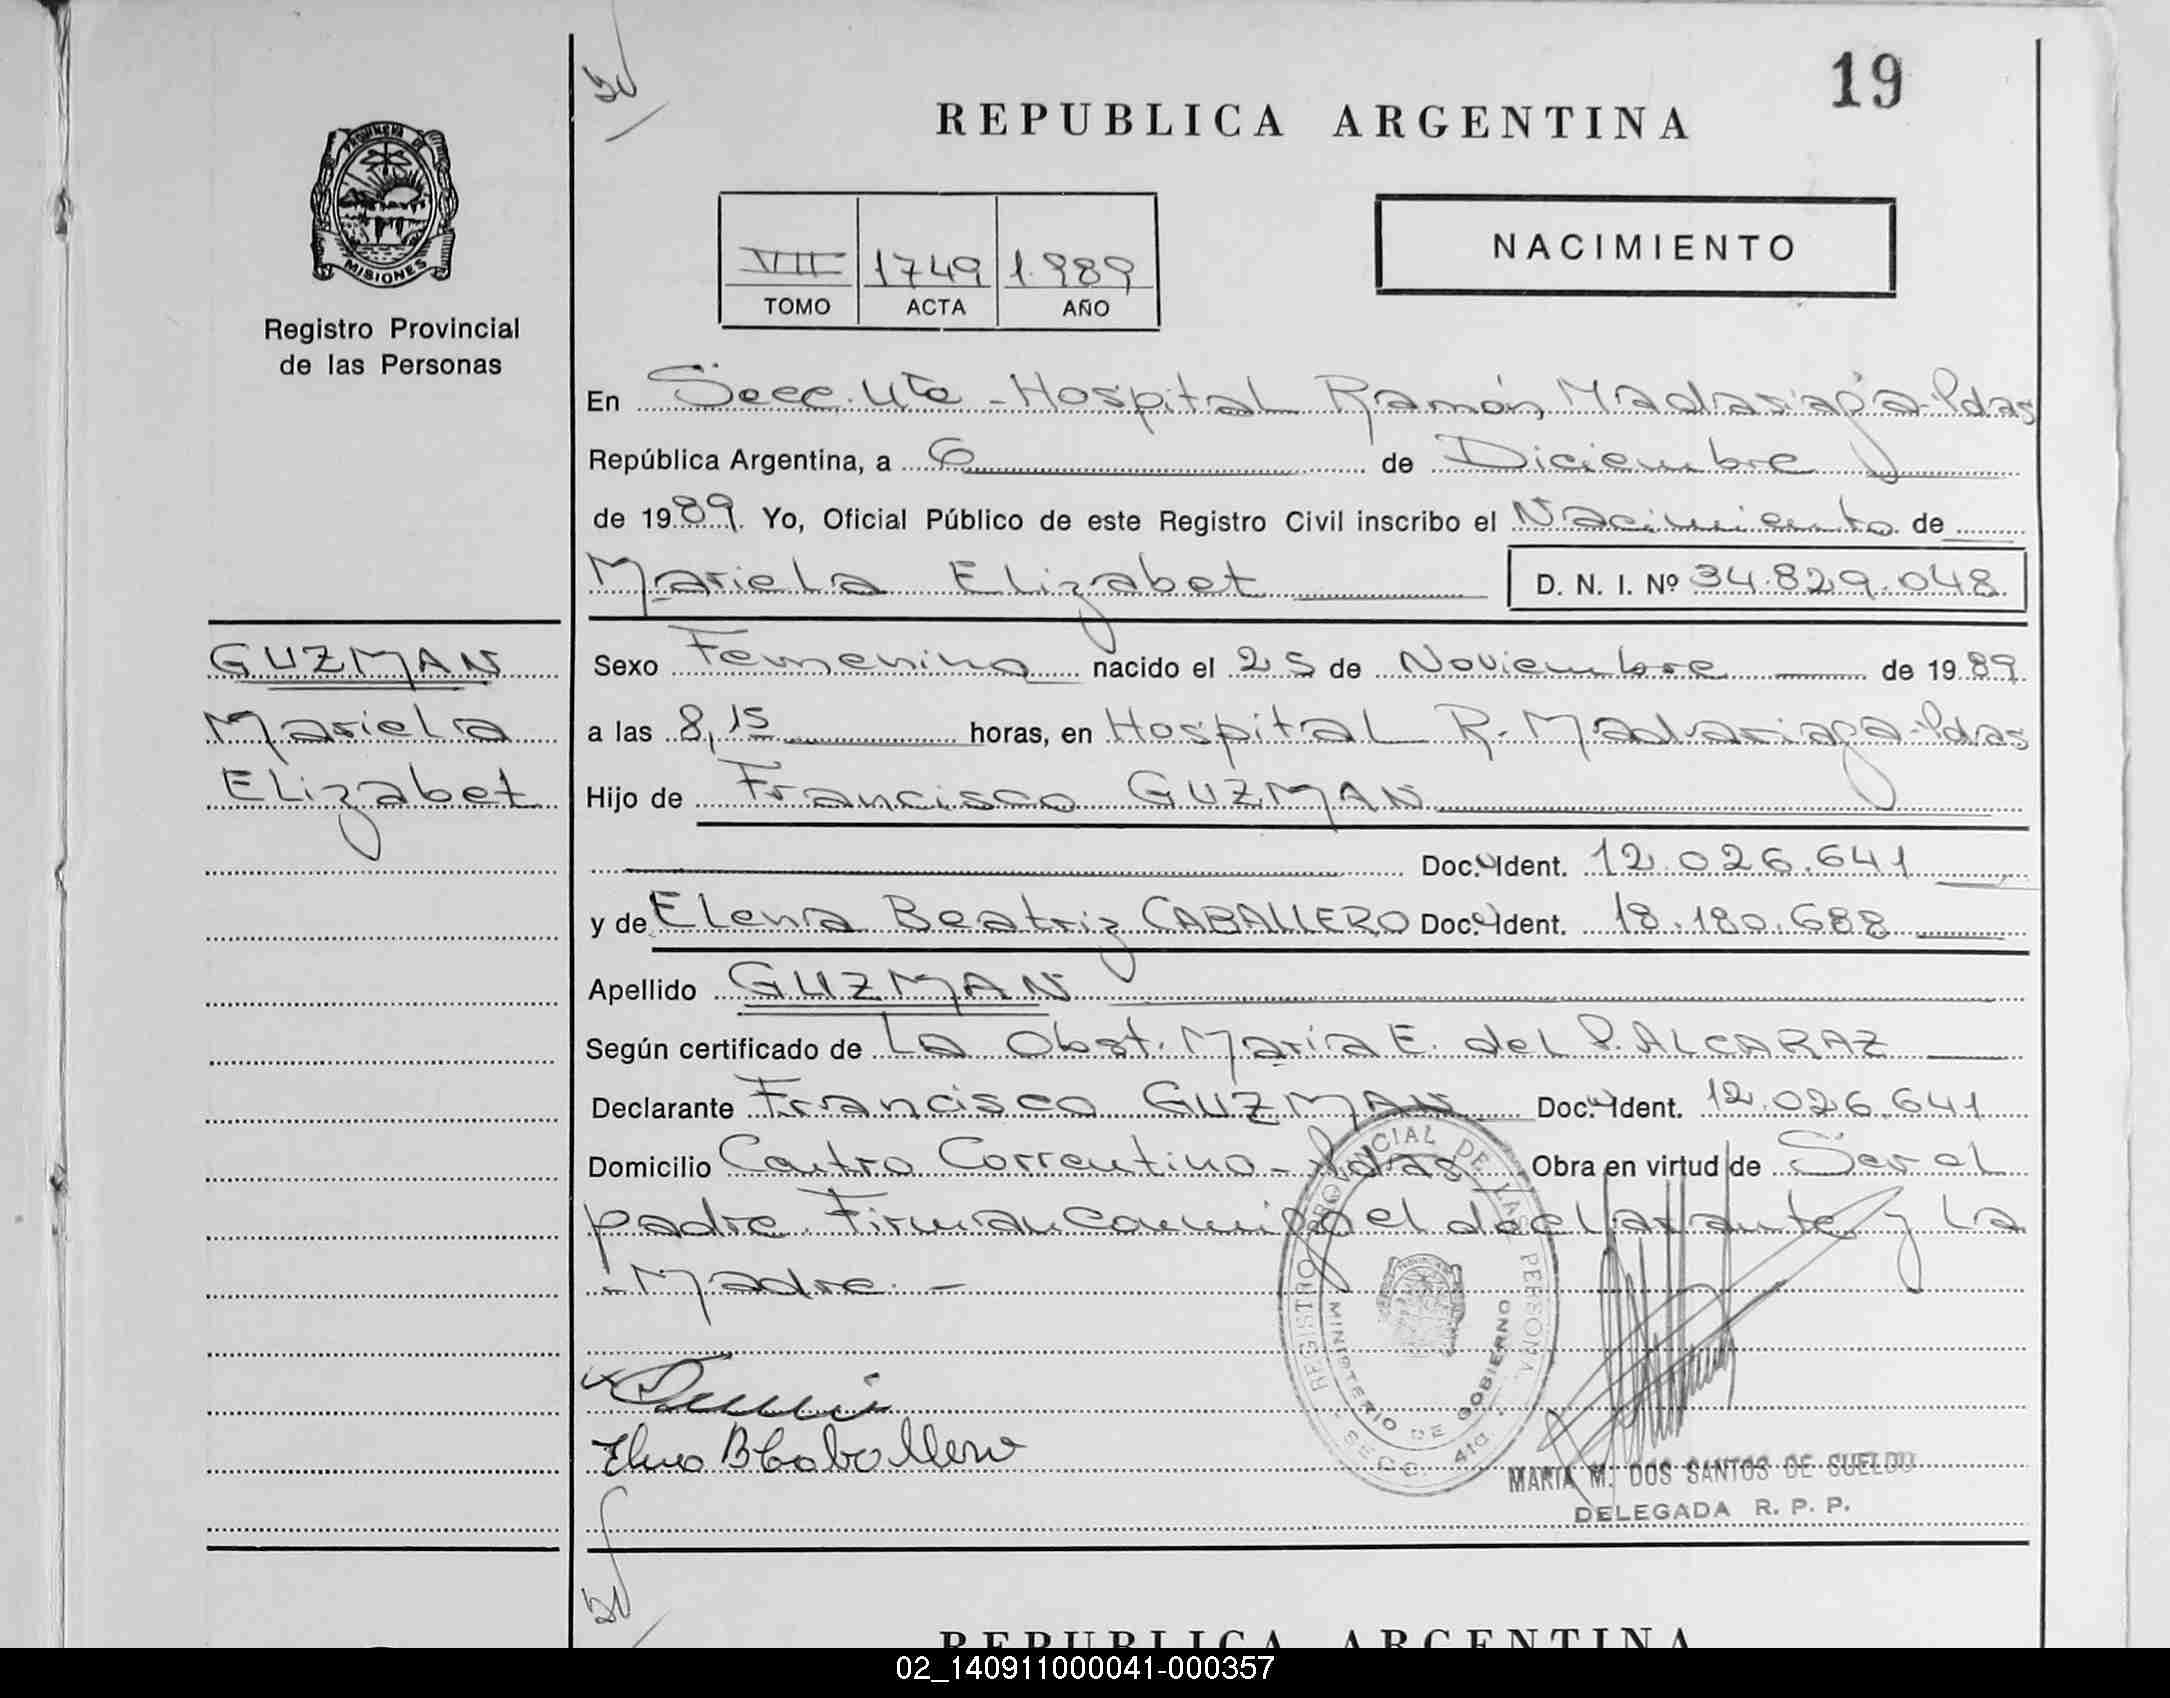 19
REPUBLICA ARGENTINA
PROVINCIA DE
MISIONES
Registro Provincial
de las Personas
NACIMIENTO
VII 1749 1.989
TOMO ACTA AÑO
En Secc. 4ta - Hospital Ramón Madariaga - Pdas
República Argentina, a 6 de Diciembre
de 1989. Yo, Oficial Público de este Registro Civil inscribo el Nacimiento de
Mariela Elizabet D. N. I. Nº 34.829.048
GUZMAN
Mariela
Elizabet
Sexo Femenino nacido el 25 de Noviembre de 1989
a las 8,15 horas, en Hospital R. Madariaga - Pdas
Hijo de Francisco GUZMAN
Doc. Ident. 12.026.641
y de Elena Beatriz CABALLERO Doc. Ident. 18.180.688
Apellido GUZMAN
Según certificado de La Obst. María E. del P. ALCARAZ
Declarante Francisco GUZMAN Doc. Ident. 12.026.641
Domicilio Centro Correntino - Pdas Obra en virtud de Ser el
padre. Firman conmigo el declarante y la
Madre. -
REGISTRO PROVINCIAL DE LAS PERSONAS
MINISTERIO DE GOBIERNO
SECC. 4ta
Elena B Caballero
MARIA M. DOS SANTOS DE SUELDO
DELEGADA R. P. P.
REPUBLICA ARGENTINA
02_140911000041-000357